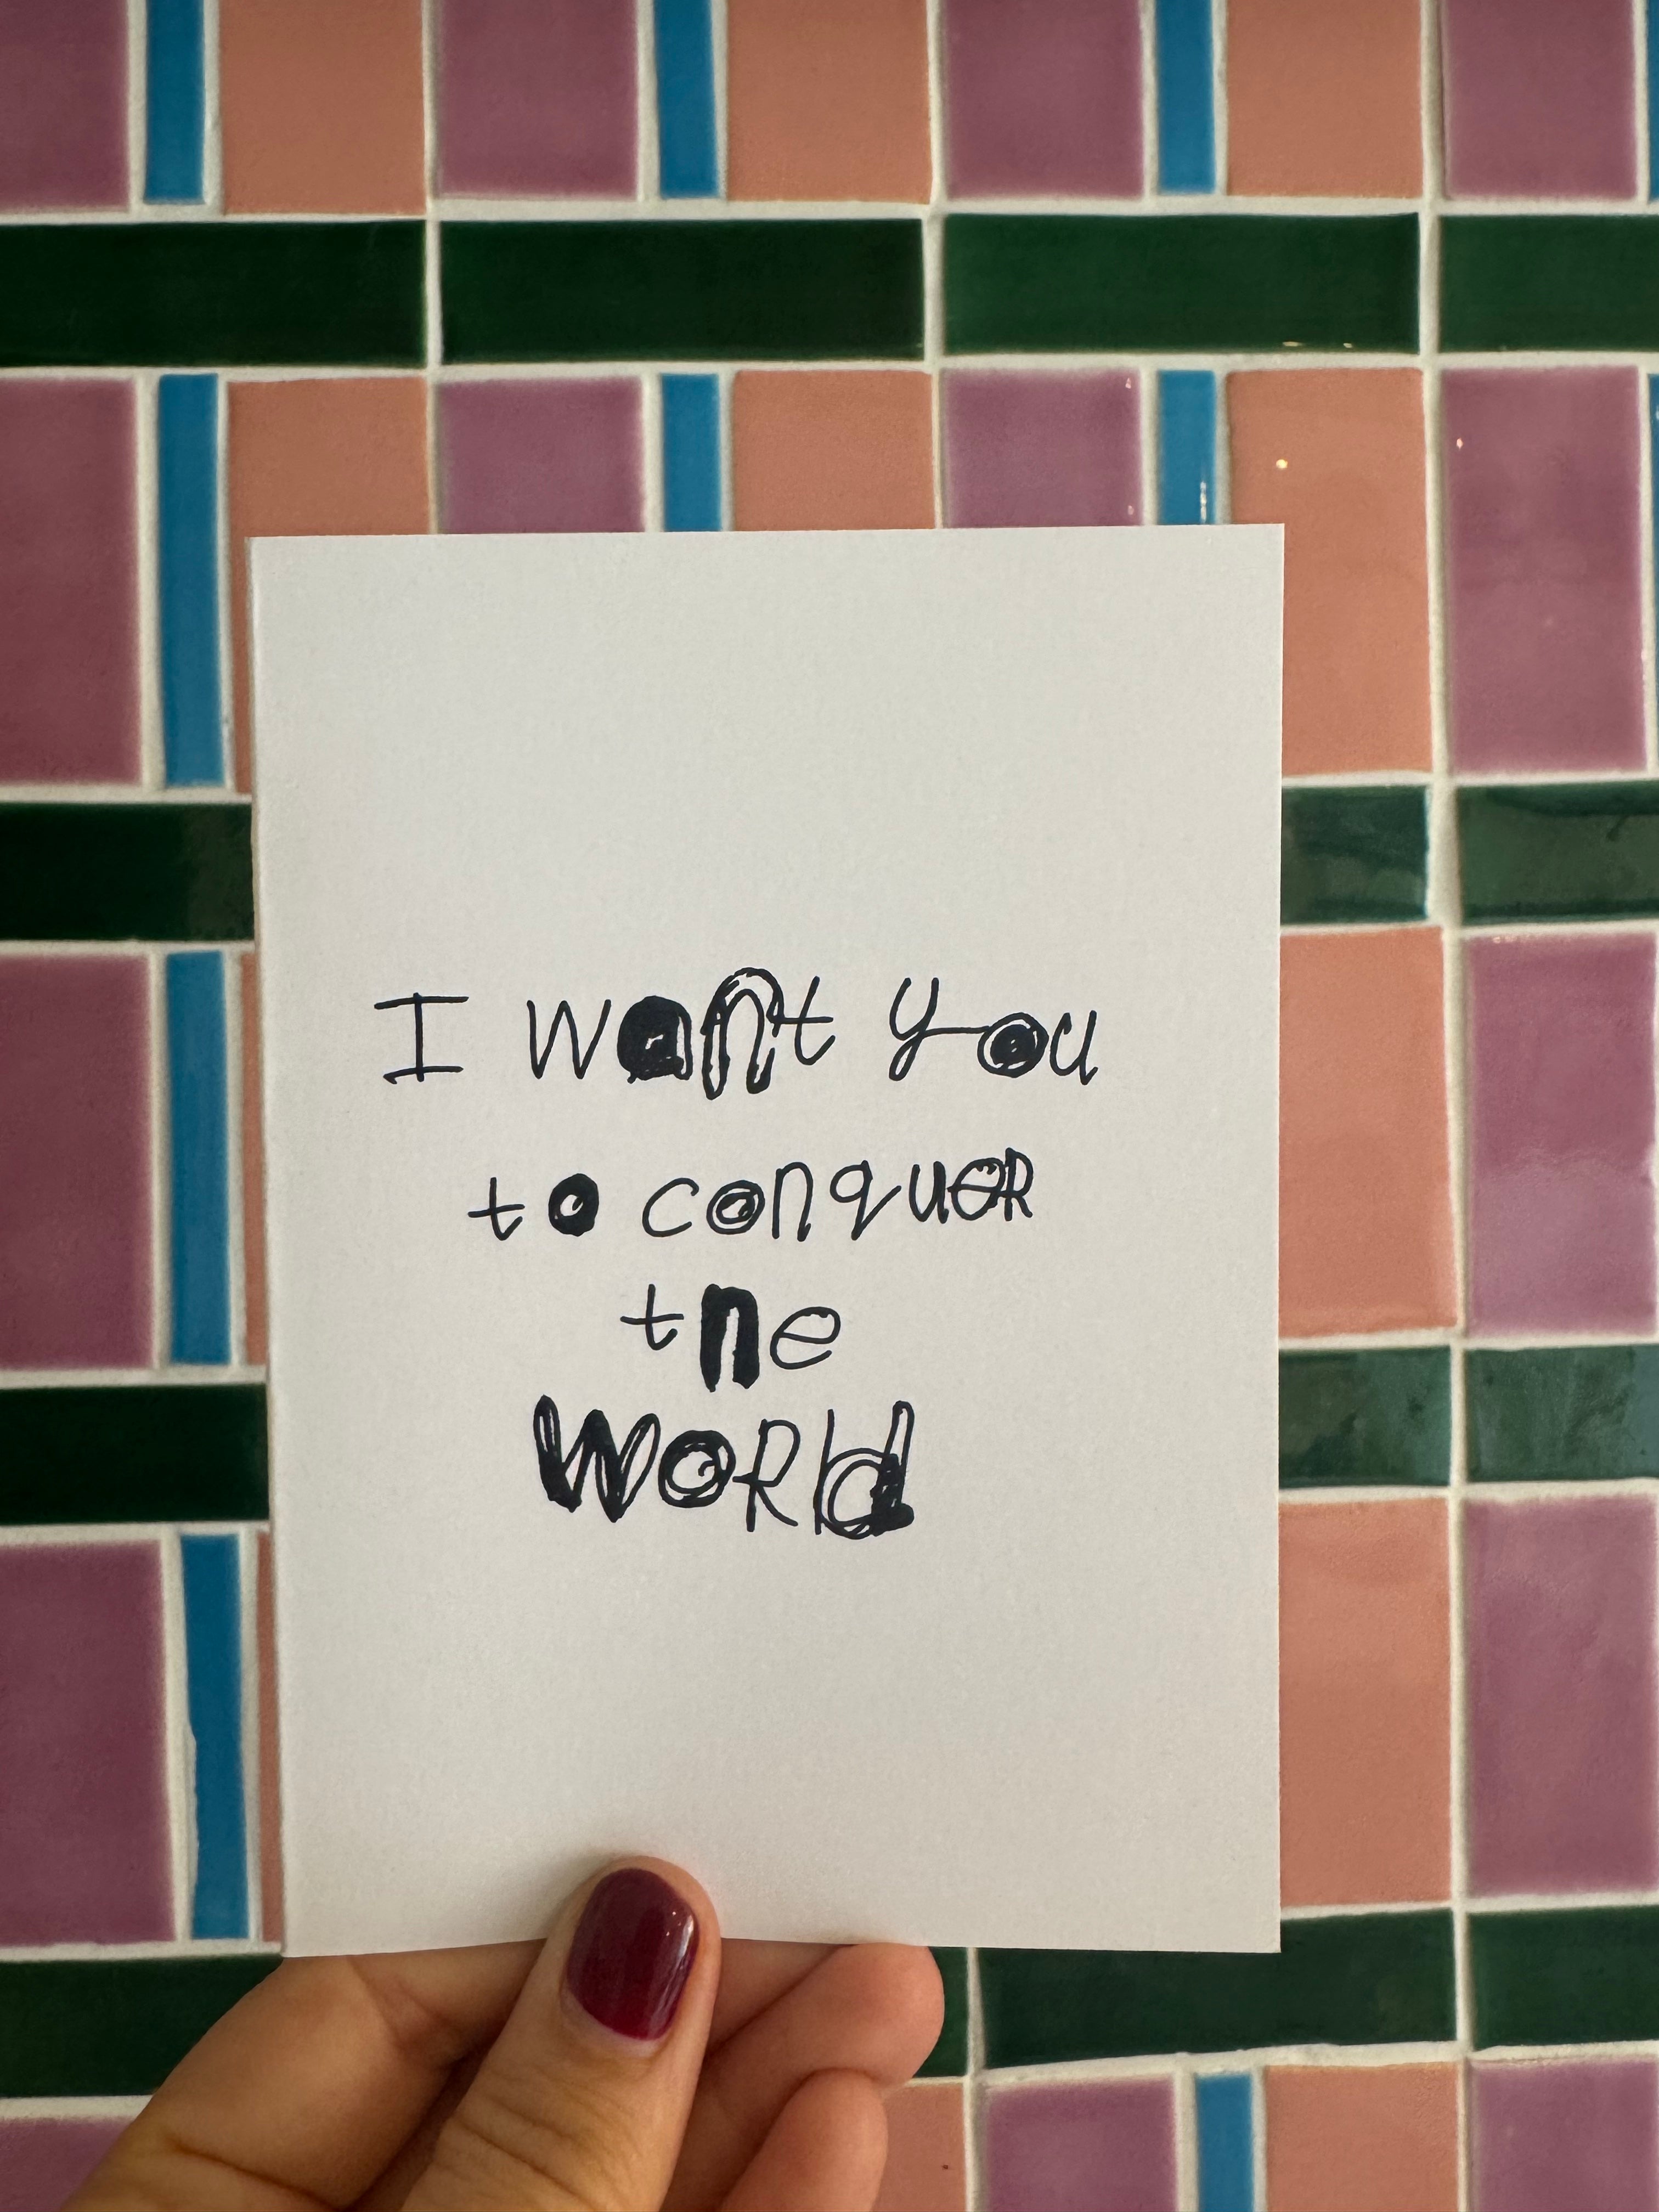 I want you
to conqueR
the
WoRld